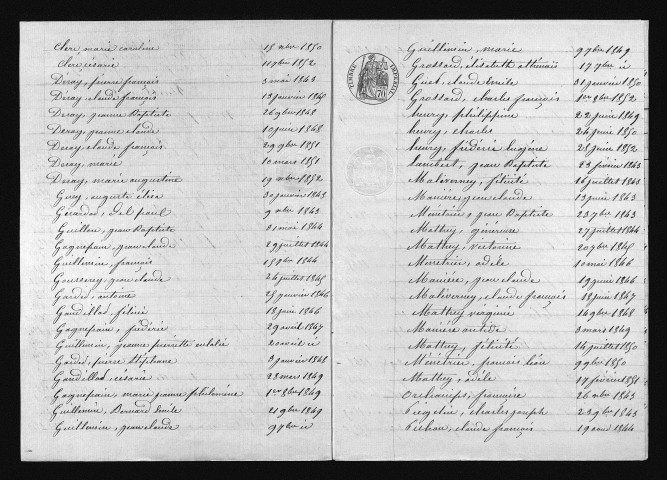 Clerc, marie caroline 15 xbre 1850
Clerc, césarie 11 9bre 1852
Deray, pierre françois 3 mai 1843
Deray, claude françois 13 janvier 1845
Deray, jeanne Baptiste 26 9bre 1848
Deray, jeanne claude 10 juin 1848
Deray, claude françois 29 9bre 1851
Deray, marie 10 mars 1851
Deray, marie augustine 19 xbre 1852
auguste élisa 30 janvier 1843
Gérardot, paul 9 xbre 1843
Guillem, jean Baptiste 31 mai 1844
Gagnepain, jean claude 29 juillet 1844
Guillemin, françois 15 9bre 1844
jean claude 24 juillet 1845
Gardot, antoine 25 janvier 1846
félicie 18 juin 1846
Gagnepain, 29 avril 1847
Guillemin, jeanne pierrette eulalie 20 avril id
Gardot, pierre Stéphane 3 janvier 1848
césarie 28 mars 1849
Gagnepain, marie jeanne philomène 1er 8bre 1849
Guillemin, Bernard émile 21 9bre 1849
Guillemin, jean claude 9 7bre id
Guillemin, marie 9 7bre 1849
TIMBRE IMPERIAL
70
Grossard, élisabeth 17 7bre id
claude émile 31 janvier 1850
Grossard, charles françois 1er 9bre 1852
henry, philippine 22 juin 1849
henry, charles 24 juin 1850
henry, frédéric Eugène 28 juin 1852
Lambert, jean Baptiste 23 février 1843
Maliverney, félicité 16 juillet 1843
Manière, jean claude 13 juin 1843
Ménétrier, jean Baptiste 23 7bre 1843
Mathey, généreuse 27 juillet 1844
Mathey, victorine 20 9bre 1845
Ménétrier, adèle 10 mai 1846
Manière, jean claude 19 juin 1846
Maliverney, claude françois 18 juin 1847
Mathey virginie 14 9bre 1848
Manière 3 mars 1849
Mathey, félicité 14 juillet 1850
Ménétrier, françois léon 9 9bre 1850
Mathey, adèle 17 février 1851
26 xbre 1843
charles joseph 23 9bre 1843
Pichon, claude françois 19 aout 1844